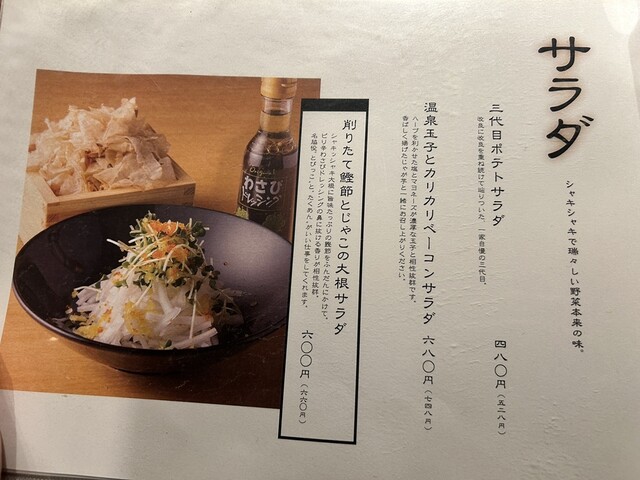 サラダ
シャキシャキで瑞々しい野菜本来の味。
三代目ポテトサラダ 四八〇円(五二八円)
改良に改良を重ね続けて辿りついた、一家自慢の三代目。
温泉玉子とカリカリベーコンサラダ 六八〇円(七四八円)
ハーブを利かせた塩とマヨネーズが濃厚な玉子と相性抜群です。
香ばしく揚げたじゃが芋と一緒にお召し上がりください。
削りたて鰹節とじゃこの大根サラダ 六〇〇円(六六〇円)
シャキッシャキ大根に旨味たっぷりの鰹節をふんだんにかけて。
ピリ辛わさびドレッシングの鼻に抜ける香りが相性抜群。
名脇役、“とびっこ”と、“たくあん”がいい仕事をしてくれます。
Original
わさび
ドレッシング